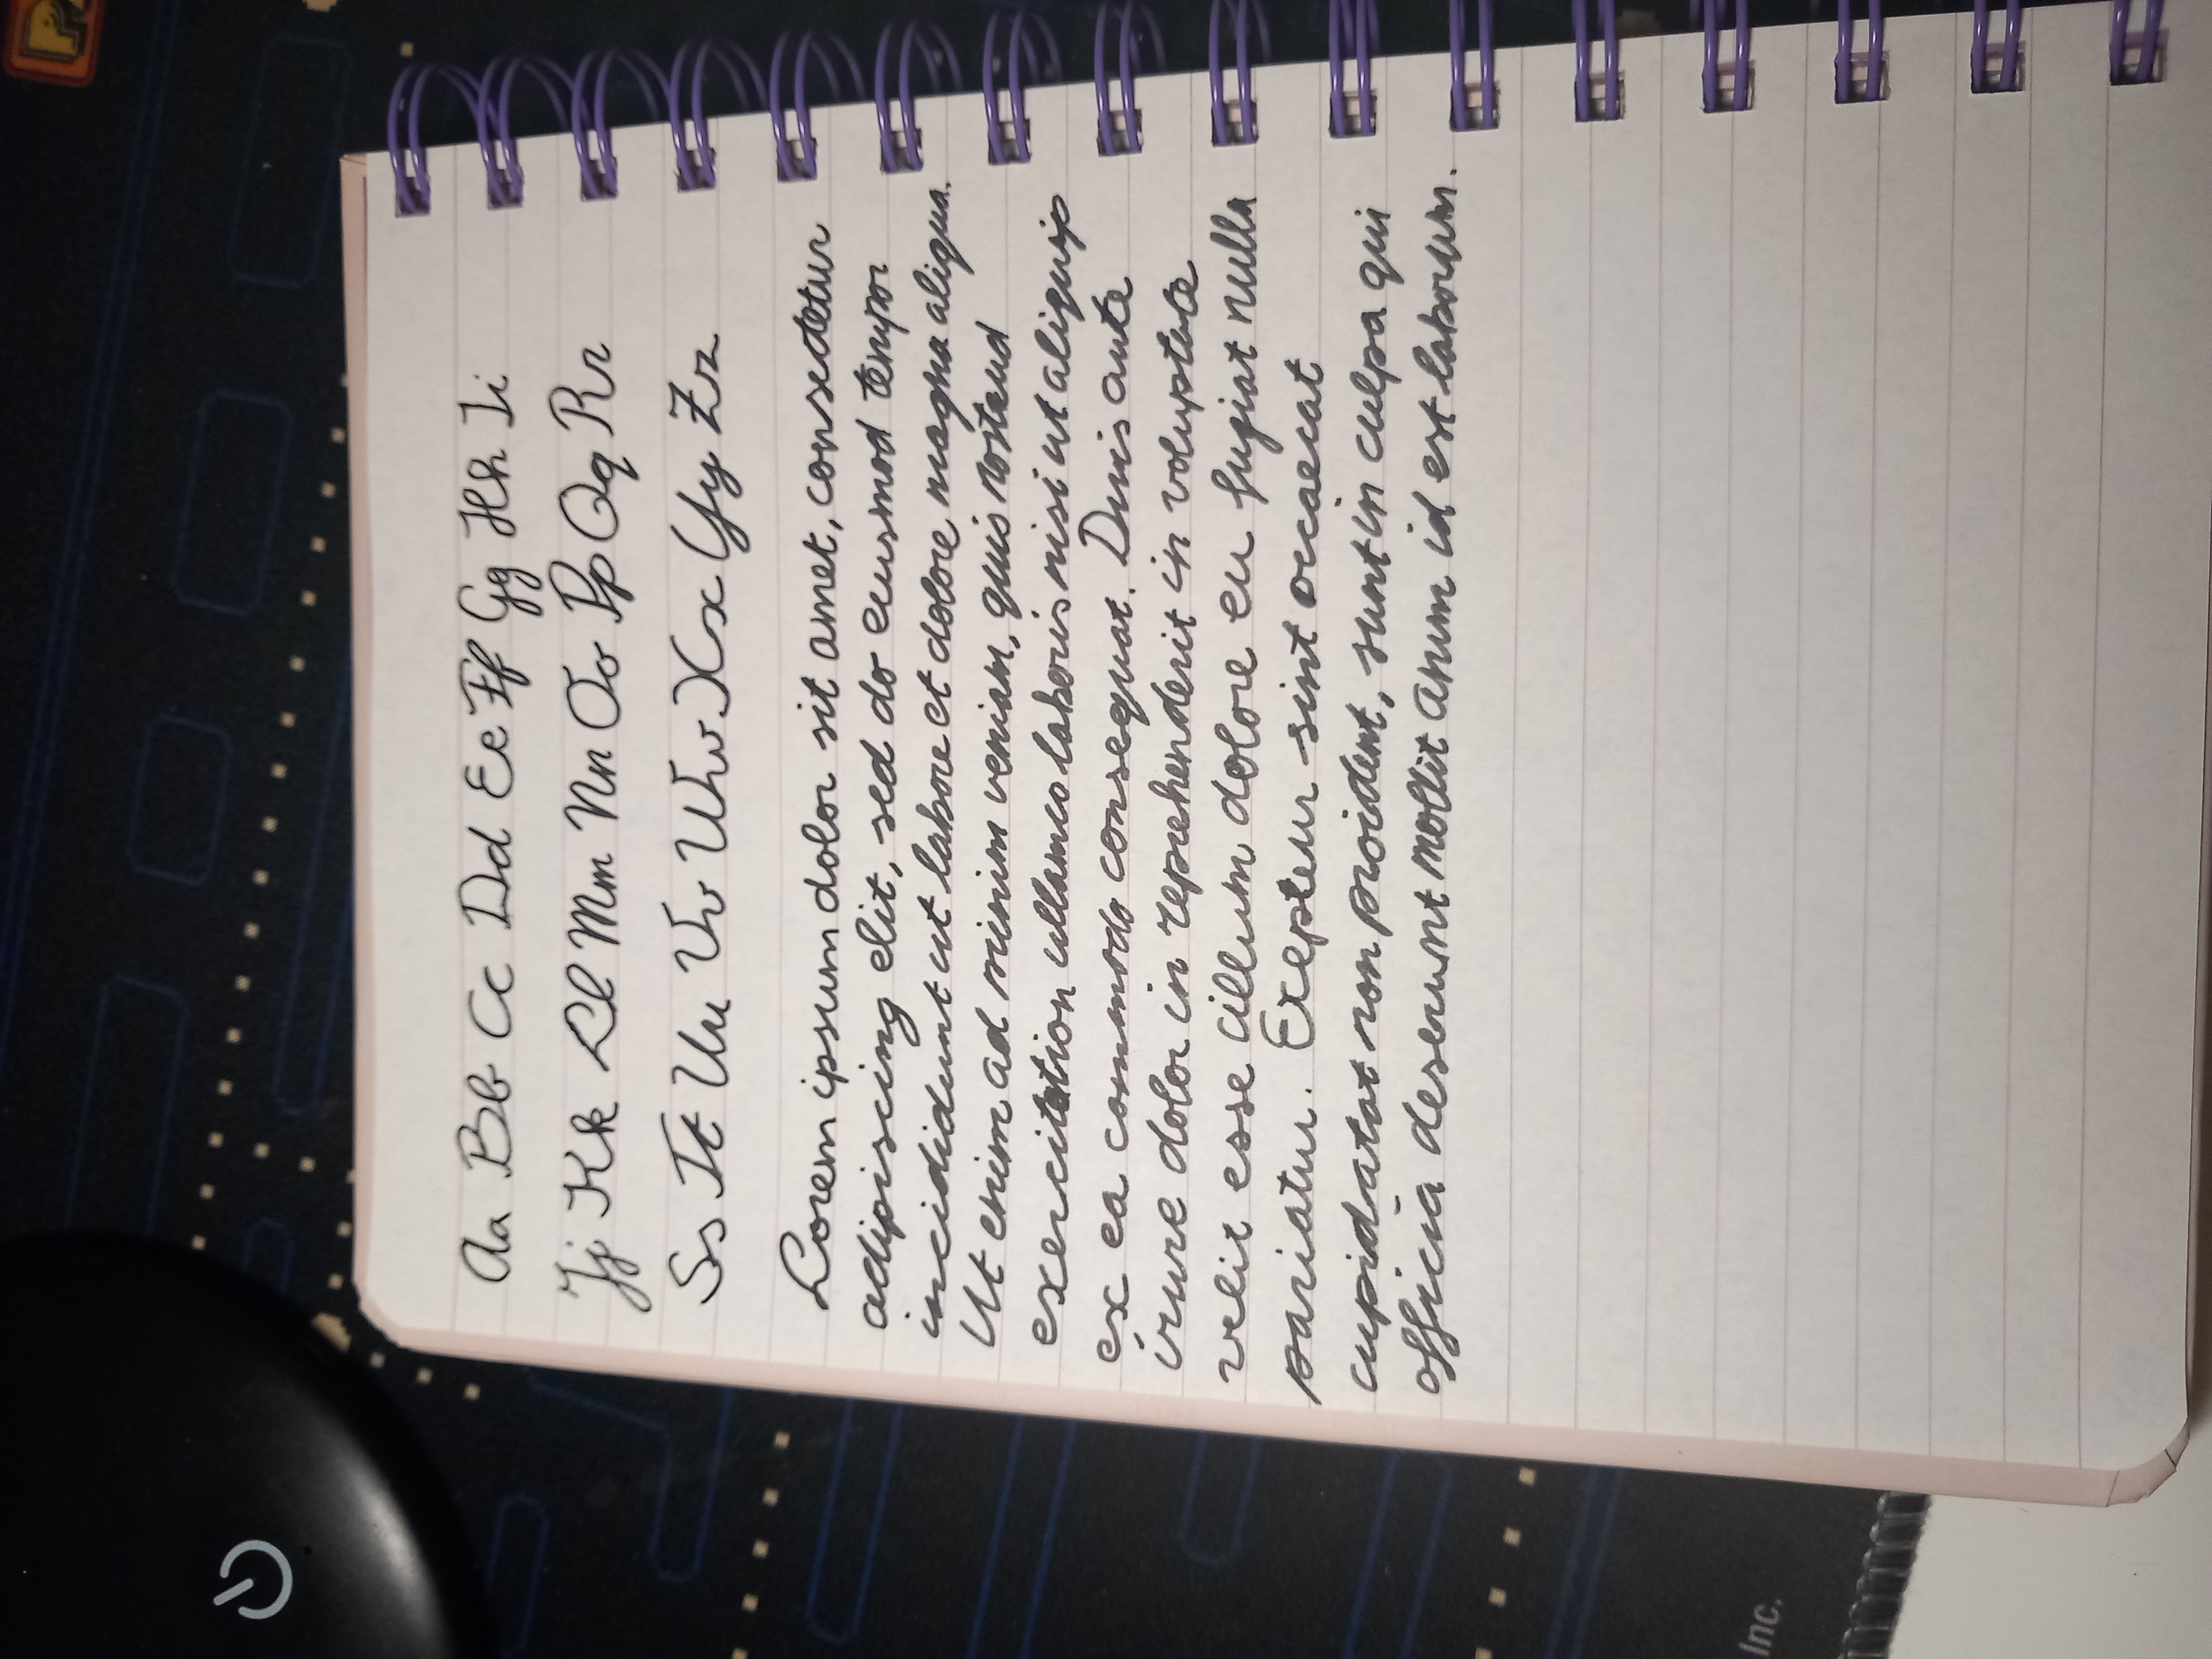 Aa Bb Cc Dd Ee Ff Gg Hh Ii
Jj Kk Ll Mm Nn Oo Pp Qq Rr
Ss Tt Uu Vv Ww Xx Yy Zz
Lorem ipsum dolor sit amet, consectetur
adipiscing elit, sed do eiusmod tempor
incididunt ut labore et dolore magna aliqua.
Ut enim ad minim veniam, quis nostrud
exercitation ullamco laboris nisi ut aliquip
ex ea commodo consequat. Duis aute
irure dolor in reprehenderit in voluptate
velit esse cillum dolore eu fugiat nulla
pariatur. Excepteur sint occaecat
cupidatat non proident, sunt in culpa qui
officia deserunt mollit anim id est laborum.
Inc.